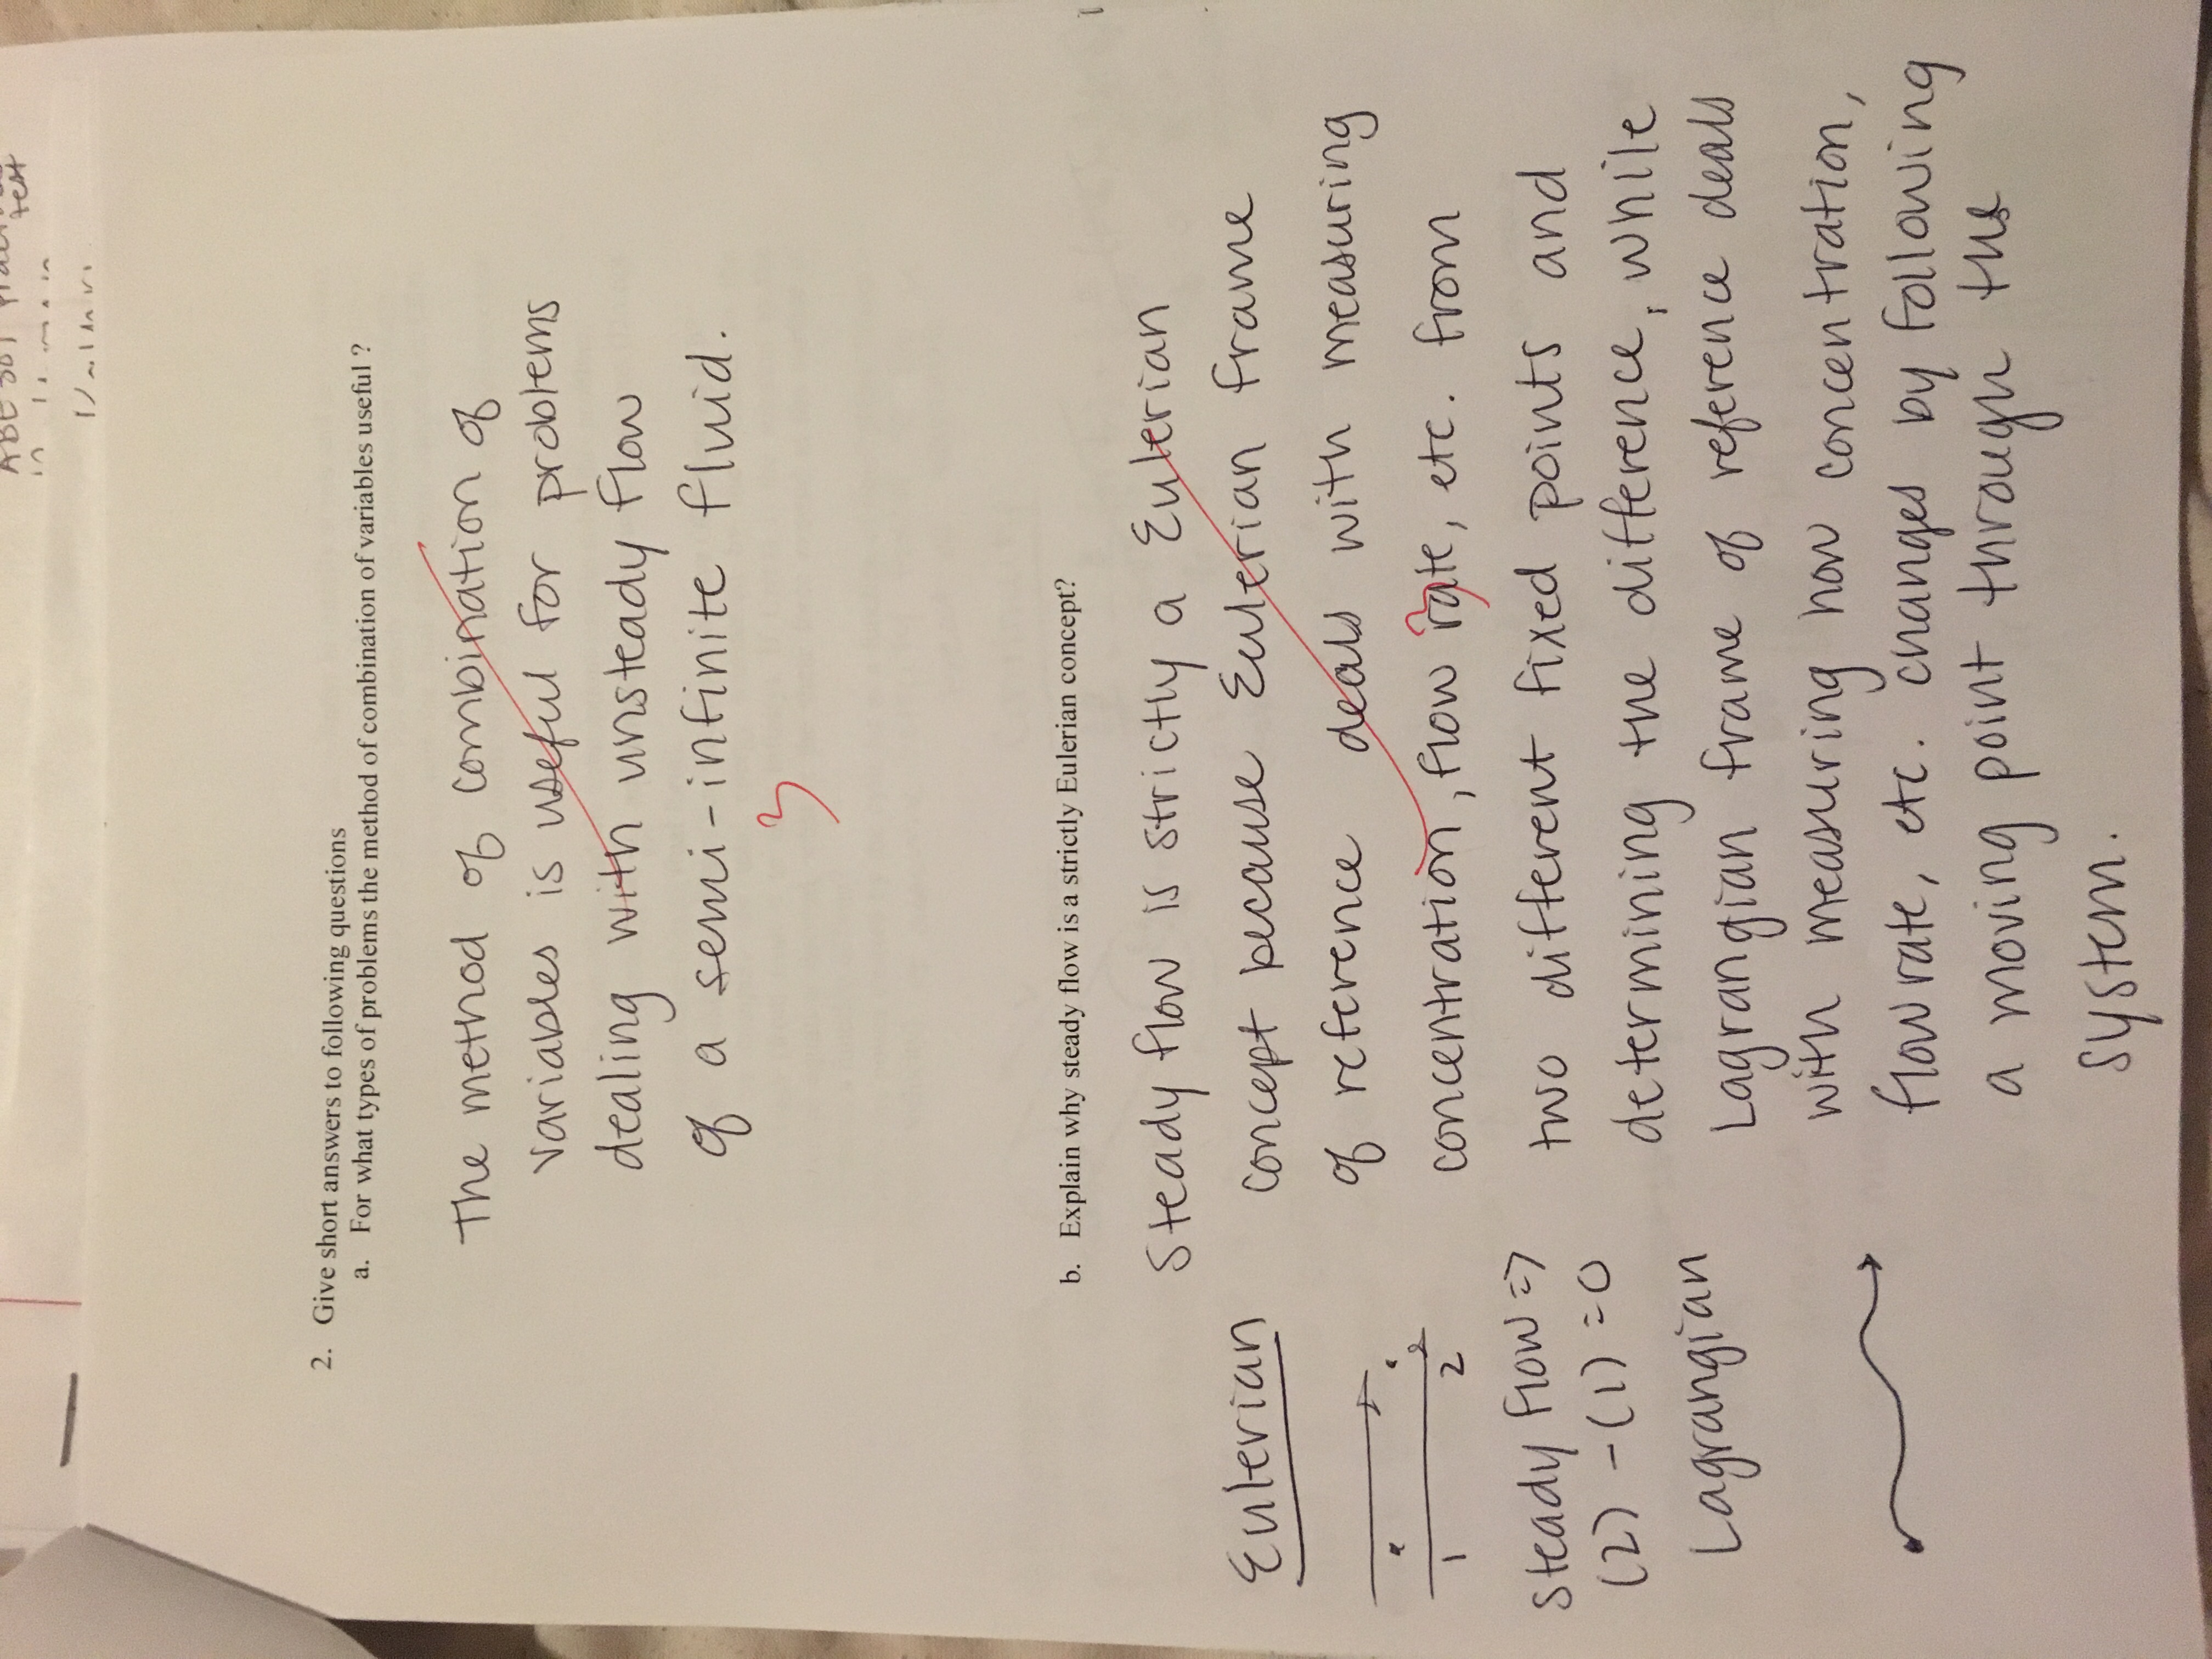 ABE 301 practice
test
2. Give short answers to following questions
a. For what types of problems the method of combination of variables useful ?
The method of combination of
variables is useful for problems
dealing with unsteady flow
of a semi-infinite fluid.
3
b. Explain why steady flow is a strictly Eulerian concept?
Steady flow is strictly a Eulerian
concept because Eulerian frame
of reference deals with measuring
concentration, flow rate, etc. from
3
two different fixed points and
determining the difference, while
Lagrangian frame of reference deals
with measuring how concentration,
flow rate, etc. changes by following
a moving point through the
system.
Eulerian
1 2
Steady flow =>
(2) - (1) = 0
Lagrangian